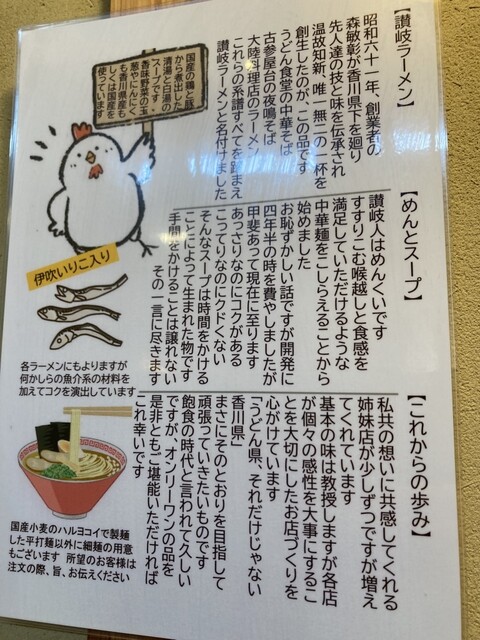 【讃岐ラーメン】
昭和六十一年、創業者の
森敏彰が香川県下を廻り
先人達の技と味を伝承され
温故知新、唯一無二の一杯を
創生したのが、この品です
うどん食堂の中華そば
古参屋台の夜鳴そば
大陸料理店のラーメン
これらの系譜すべてを踏まえ
讃岐ラーメンと名付けました
国産の鶏と豚
から煮出した
清湯と白湯の
スープです
香味野菜の玉
葱やにんにく
も香川県産も
しくは国産を
使っています
【めんとスープ】
讃岐人はめんくいです
すすりこむ喉越しと食感を
満足していただけるような
中華麺をこしらえることから
始めました
お恥ずかしい話ですが開発に
四年半の時を費やしましたが
甲斐あって現在に至ります
あっさりなのにコクがある
こってりなのにクドくない
そんなスープは時間をかける
ことによって生まれた物です
手間をかけることは譲れない
その一言に尽きます
伊吹いりこ入り
各ラーメンにもよりますが
何かしらの魚介系の材料を
加えてコクを演出しています
【これからの歩み】
私共の想いに共感してくれる
姉妹店が少しずつですが増え
てくれています
基本の味は教授しますが各店
が個々の感性を大事にするこ
とを大切にしたお店づくりを
心がけています
「うどん県、それだけじゃない
香川県」
まさにそのとおりを目指して
頑張っていきたいものです
飽食の時代と言われて久しい
ですが、オンリーワンの品を
是非ともご堪能いただければ
これ幸いです
国産小麦のハルヨコイで製麺
した平打麺以外に細麺の用意
もございます 所望のお客様は
注文の際、旨、お伝えください